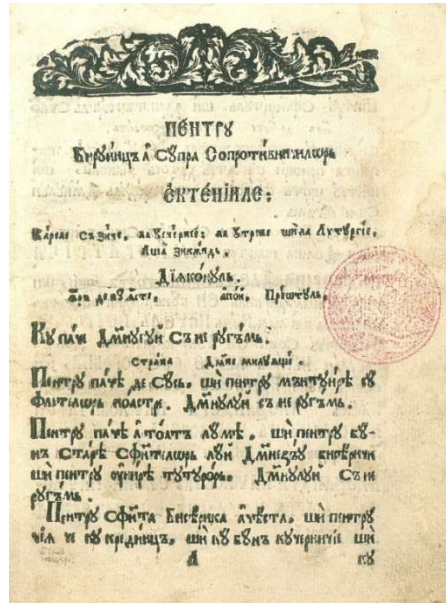 ПЕНТРꙊ
Бирꙋинцъ ꙟ Сꙋпра Сопротивничилѡрь
ЕКТЕНІИЛЕ:
Кареле Съ зикꙋ, ла вечерніе: ла ꙋтрѣне ши ла Лѵтꙋргіе,
Аша зикѫндь
Дїѧконꙋль.
апои, Прѣѡтꙋль,
Кꙋ паче Дмнꙋлꙋи Съ не рꙋгъмь.
Страна Дѡмне милꙋѧще.
Пентрꙋ паче де Сꙋсь, ши пентрꙋ мънтꙋирѣ Сꙋ
флетелѡрь ноастре. Дмнꙋлꙋи съ не рꙋгъмь.
Пентрꙋ паче а тоатъ лꙋмѣ, ши пентрꙋ бꙋ-
нъ Старѣ Сфинтелѡрь лꙋи Дмнезъꙋ бисѣричи
ши пентрꙋ ꙋнирѣ тꙋтꙋрорь. Дмнꙋлꙋи Съ не
рꙋгъмь.
Пентрꙋ Сфѫнта Бисѣрика ачѣста, ши пентрꙋ
чеѧ че кꙋ крединцъ, ши кꙋ бꙋнъ кꙋчерничіе ши
А кꙋ